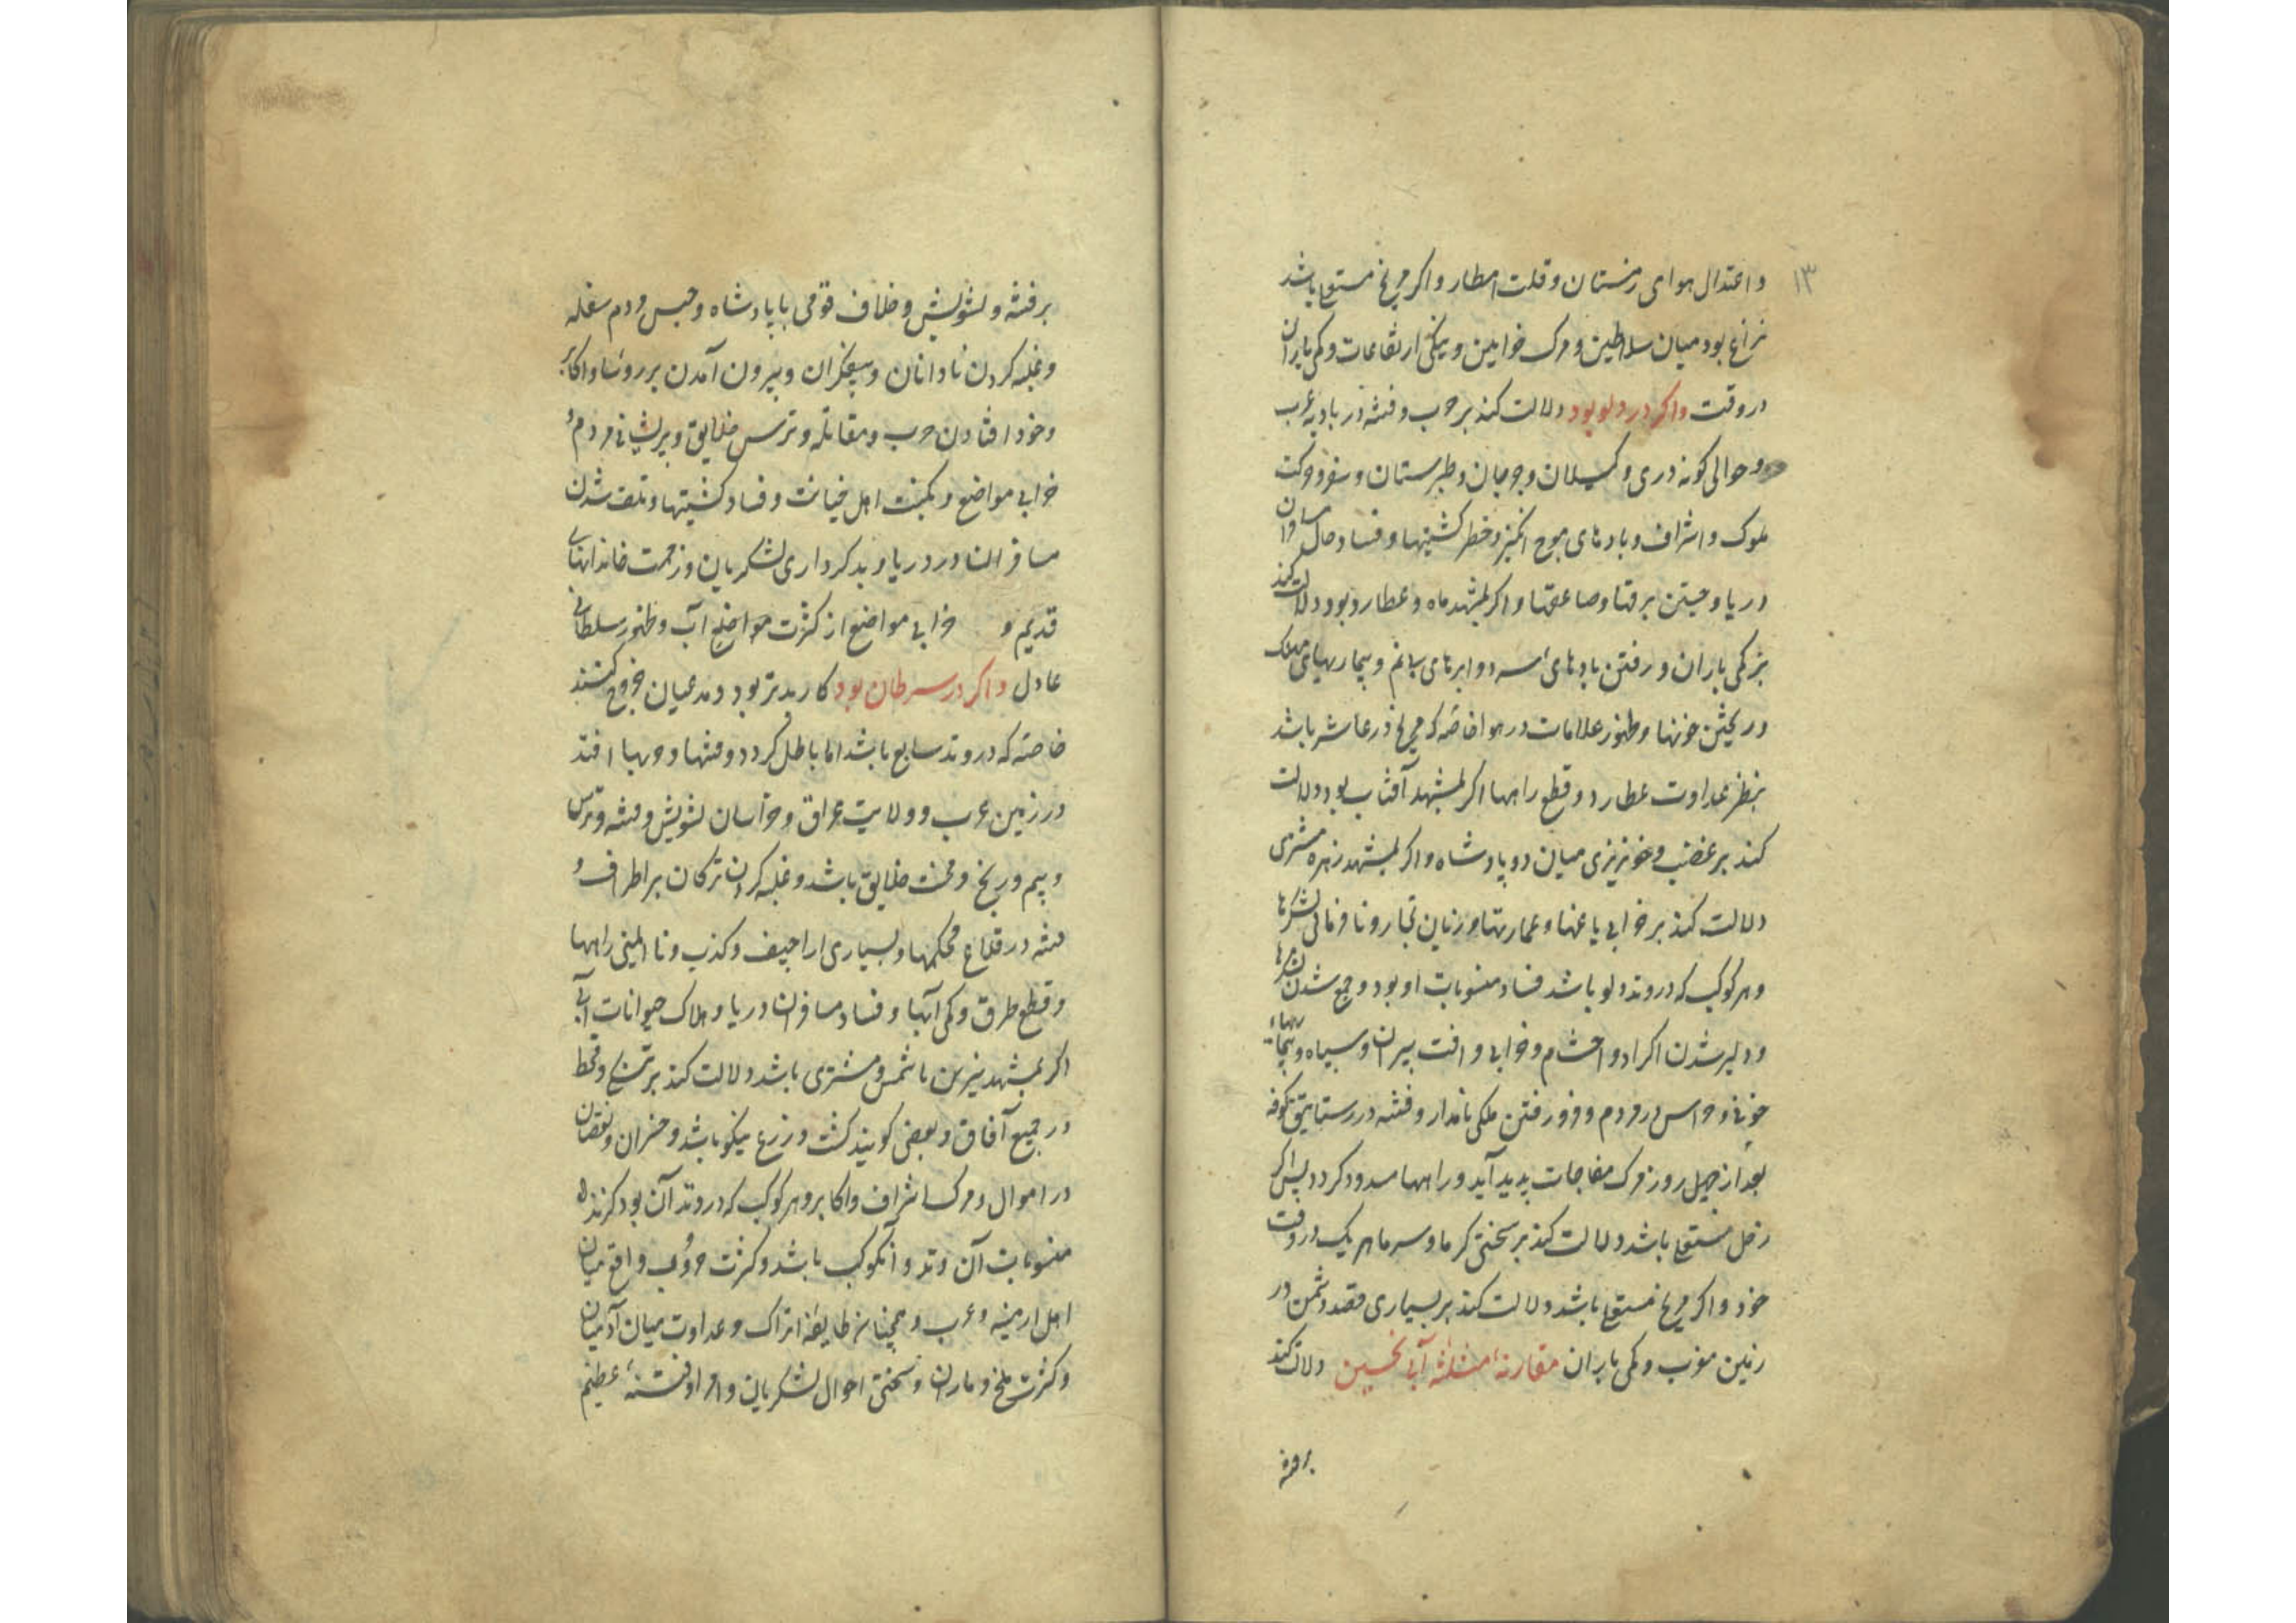 ۱۳
و اعتدال هوای زمستان و قلت امطار و اکر مریخ مستعلی باشد
نزاع بود میان سلاطین و مرک خواتین و نیکی ارتفاعات و کمی باران
در وقت و اکر در دلو بود دلالت کند بر حرب و فتنه در بادیه عرب
و حوالی کوفه و ری و کیلان و جرجان و طبرستان و سفر و حرکت
ملوک و اشراف و بادهای موج انکیز و خطر کشتیها و فساد حال مسافران
دریا و جستن برقها و صاعقها و اکر بمشهد ماه و عطارد بود دلالت کند
بر کمی باران و رفتن بادهای سرد و ابرهای بی نم و بیماریهای مهلک
و ریختن خونها و ظهور علامات در هوا خاصه که مریخ در عاشر باشد
بنظر عداوت عطارد و قطع راهها اکر بمشهد آفتاب بود دلالت
کند بر غضب و خونریزی میان دو پادشاه و اکر بمشهد زهره مشتری
دلالت کند بر خرابی باغها و عمارتها و زیان تجار و نافرمانی لشکرها
و هر کوکب که در وتد دلو باشد فساد منسوبات او بود و جمع شدن لشکرها
و دلیر شدن اکراد و احشام و خرابی و افت پیران و سیاه و بیماریهاء
خونی و حواس در مردم و فرو رفتن ملکی نامدار و فتنه در رستاییق کوفه
بعد از چهل روز مرک مفاجات پدید آید و راهها مسدود کردد پس اکر
زحل مستعلی باشد دلالت کند بر سختی کرما و سرما هر یک در وقت
خود و اکر مریخ مستعلی باشد دلالت کند بر بسیاری قصد دشمن در
زمین مغرب و کمی باران مقارنهٔ مثلثه آبی نحسین دلالت کند
بر فتنه
بر فتنه و تشویش و خلاف قومی با پادشاه و حبس مردم سفله
و غلبه کردن نادانان و بیرون آمدن بر روسا و اکابر
و خود افتادن حرب و مقاتله و ترس خلایق و پریشانی مردم و
خرابی مواضع و نکبت اهل خیانت و فساد کشتیها و تلف شدن
مسافران در دریا و بد کرداری لشکریان و زحمت خاندانهای
قدیم و خرابی مواضع از کثرت مواضع آب و ظهور سلطانی
عادل و اکر در سرطان بود کار بدتر بود و مدعیان خروج کنند
خاصه که در وتد سابع باشد اما باطل کردد و فتنها و حربها افتد
در زمین عرب و ولایت عراق و خراسان تشویش و فتنه و ترس
و بیم و رنج و محنت خلایق باشد و غلبه کردن ترکان بر اطراف و
فتنه در قلاع محکمها و بسیاری اراجیف و کذب و نا ایمنی راهها
و قطع طرق و کمی آبها و فساد مسافران دریا و هلاک حیوانات آبی
اکر بمشهد نیرین با شمس و مشتری باشد دلالت کند بر تنکی و قحط
در جمیع آفاق و بعضی کویند کشت و زرع نیکو باشد و خسران و نقصان
در اموال و مرک اشراف و اکابر و هر کوکب که در وتد آن بود کزنده
منسوبات آن وتد و آنکوکب باشد و کثرت حروب واقع میان
اهل ارمینه و عرب و همچنانه طایفهٔ اتراک و عداوت میان آدمیان
و کثرت ملخ و ماران و سختی احوال لشکریان و امرا و فتنهٔ عظیم